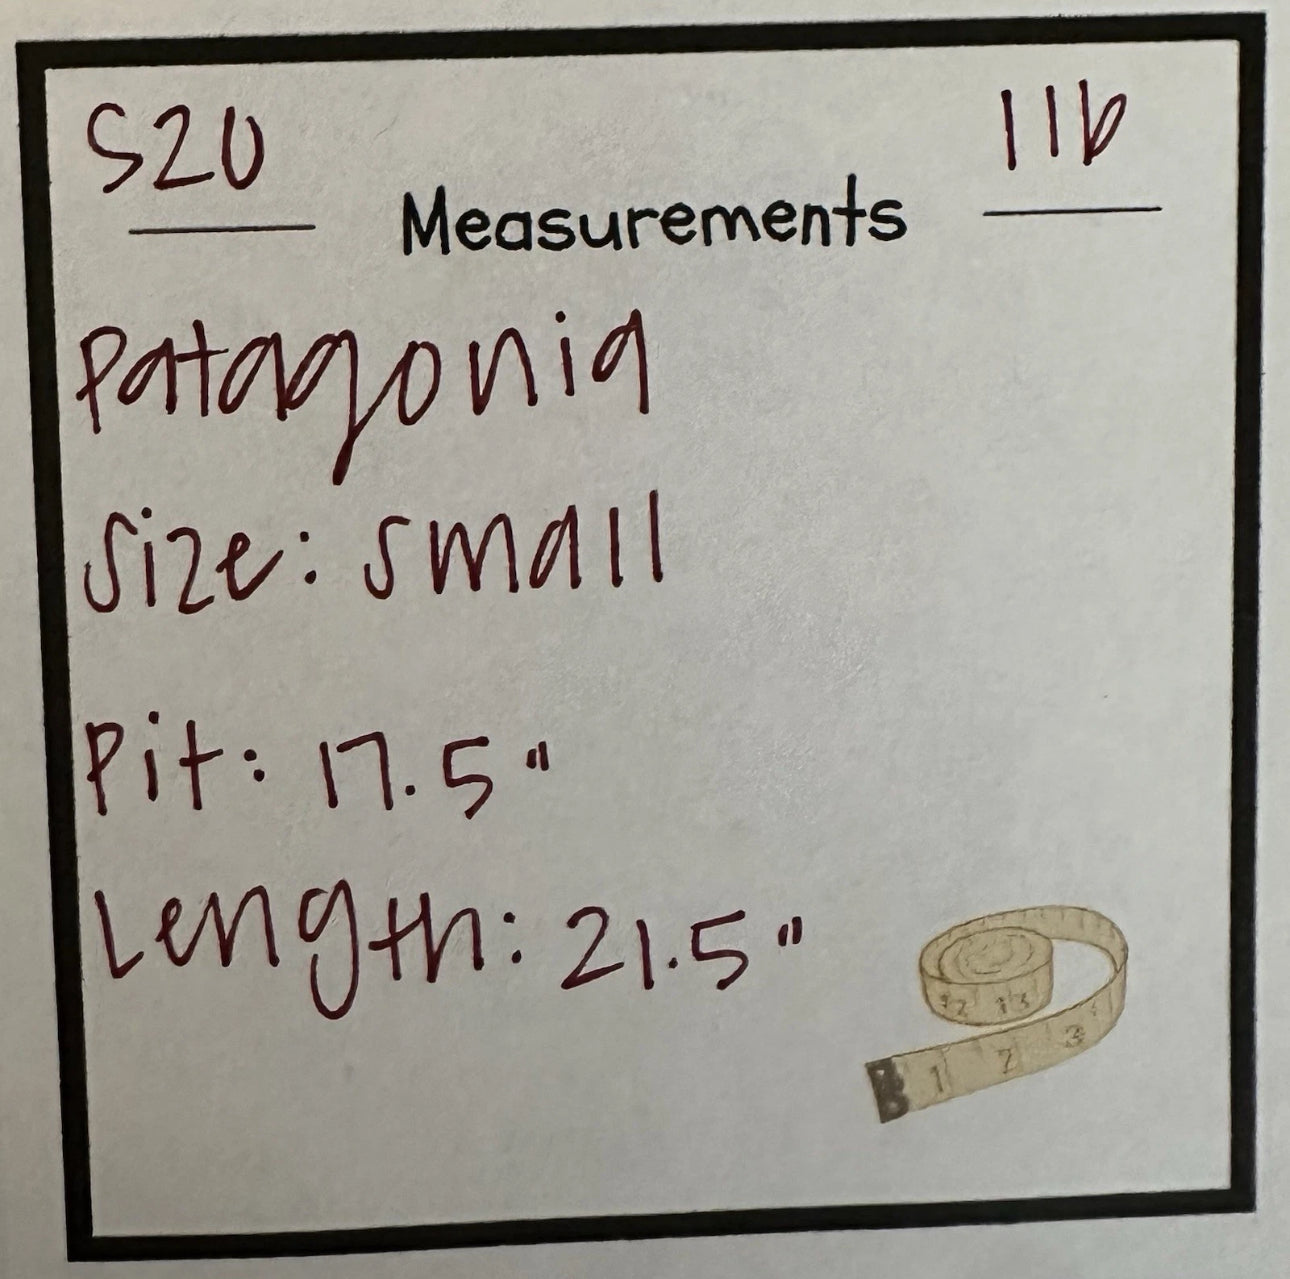 S20 116
Measurements
Patagonia
Size: small
Pit: 17.5"
Length: 21.5"
12 13
1 2 3